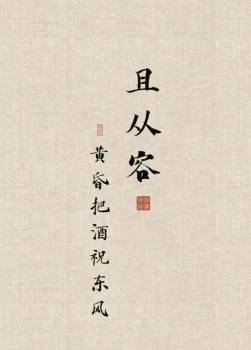 且从容
黄昏把酒祝东风